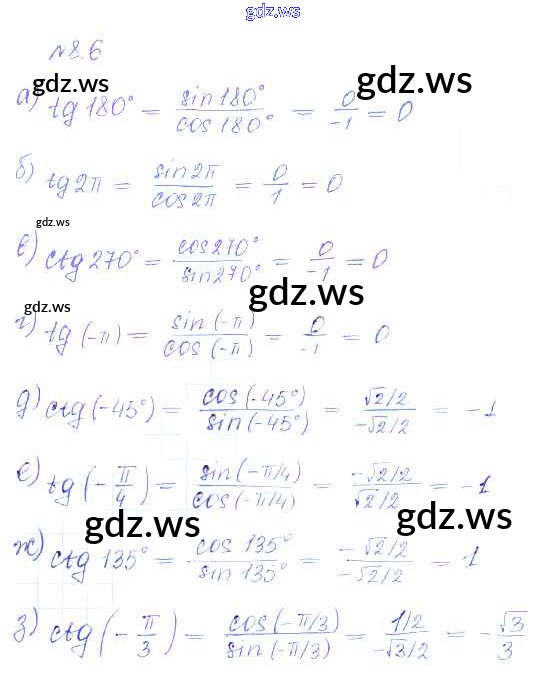 gdz.ws
№8.6
gdz.ws gdz.ws
а) tg 180° = sin 180° / cos 180° = 0 / -1 = 0
б) tg 2π = sin 2π / cos 2π = 0 / 1 = 0
gdz.ws
в) ctg 270° = cos 270° / sin 270° = 0 / -1 = 0
gdz.ws
gdz.ws
г) tg (-π) = sin (-π) / cos (-π) = 0 / -1 = 0
д) ctg (-45°) = cos (-45°) / sin (-45°) = √2/2 / -√2/2 = -1
е) tg (-π/4) = sin (-π/4) / cos (-π/4) = -√2/2 / √2/2 = -1
gdz.ws gdz.ws
ж) ctg 135° = cos 135° / sin 135° = -√2/2 / -√2/2 = 1
з) ctg (-π/3) = cos (-π/3) / sin (-π/3) = 1/2 / -√3/2 = -√3/3